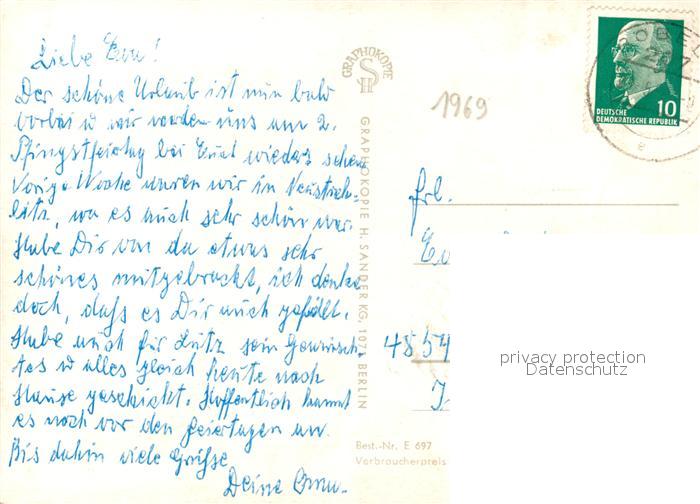 Liebe Eva!
Der schöne Urlaub ist nun bald
vorbei u wir werden uns am 2.
Pfingstfeiertag bei Euch wieder sehen
Vorige Woche waren wir in Neustre-
litz, wo es auch sehr schön war.
Habe Dir von da etwas sehr
schönes mitgebracht, ich denke
doch, daß es Dir auch gefällt.
Habe auch für Lutz sein Gewünsch-
tes u alles gleich heute nach
Hause geschickt. Hoffentlich kommt
es noch vor den Feiertagen an.
Bis dahin viele Grüsse
Deine Omu.
GRAPHOKOPIE
H S
GRAPHOKOPIE H. SANDER KG, 1071 BERLIN
1969
10
DEUTSCHE
DEMOKRATISCHE REPUBLIK
Frl.
4854
privacy protection
Datenschutz
Best.-Nr. E 697
Verbraucherpreis